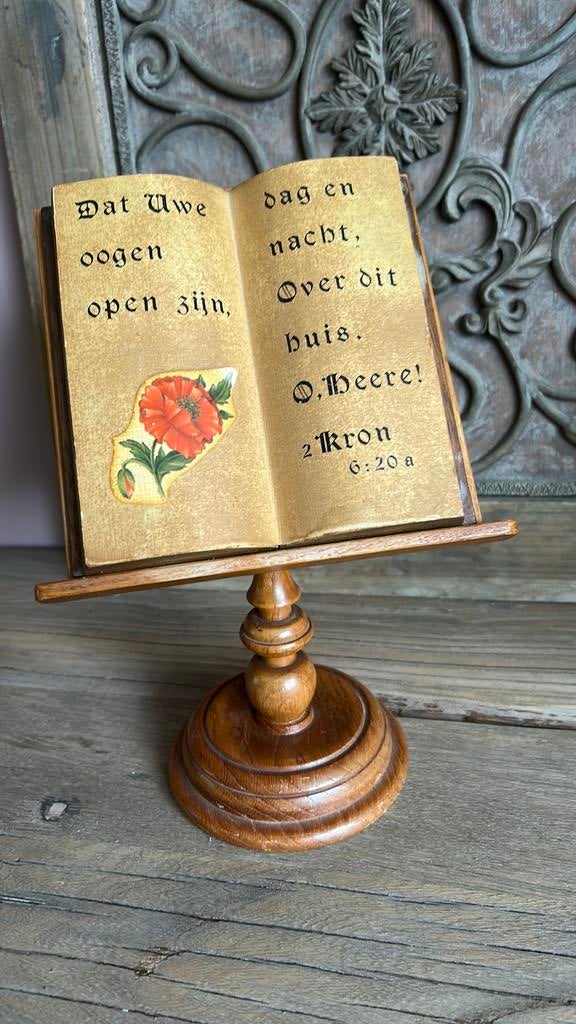 Dat Uwe
oogen
open zijn,
dag en
nacht,
Over dit
huis.
O, Heere!
2 Kron
6:20a